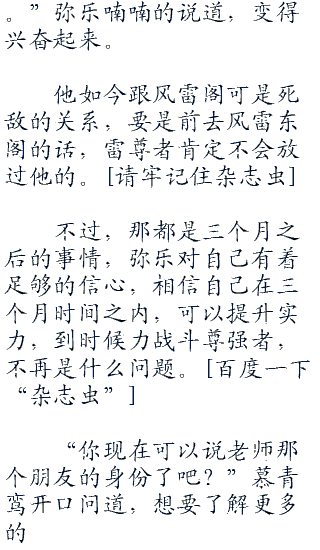 。”弥乐喃喃的说道，变得
兴奋起来。
他如今跟风雷阁可是死
敌的关系，要是前去风雷东
阁的话，雷尊者肯定不会放
过他的。[请牢记住杂志虫]
不过，那都是三个月之
后的事情，弥乐对自己有着
足够的信心，相信自己在三
个月时间之内，可以提升实
力，到时候力战斗尊强者，
不再是什么问题。[百度一下
“杂志虫”]
“你现在可以说老师那
个朋友的身份了吧？”慕青
鸾开口问道，想要了解更多
的